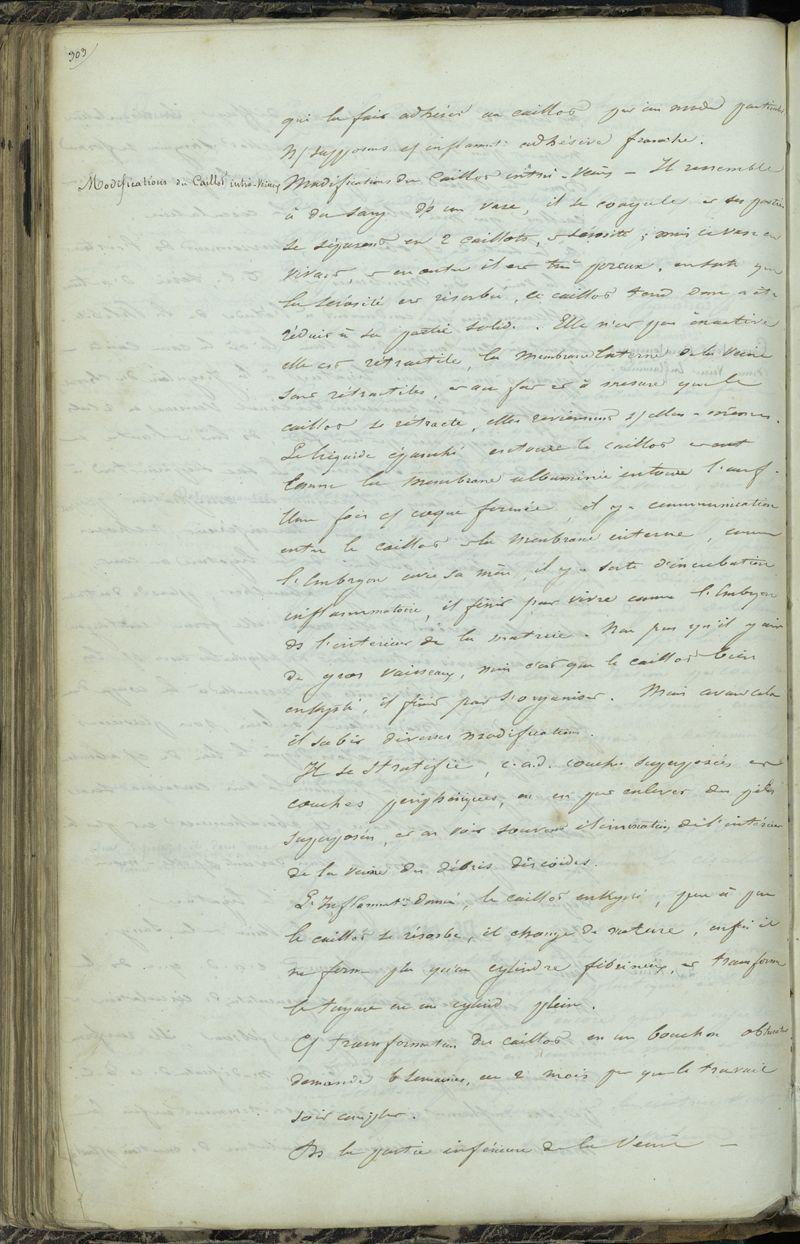 303
qui la fait adhérer au caillot par un mode particulier
N/ supposons cf inflammt adhésive franche.
Modifications du Caillot intra-Veineux
Modifications du Caillot intra-Veineux — Il ressemble
à du sang ds un vase, il se coagule et ses parties
se séparent en 2 caillots, & sérosité ; mais ce vase est
vivant, & en outre il est très poreux, en sorte que
la sérosité est résorbée, le caillot tend donc à être
réduit à sa partie solide. Elle n'est pas inactive
elle est rétractile, la membrane interne de la Veine
sont rétractiles, et au fur et à mesure que le
caillot se rétracte, elles reviennent s/ elles-mêmes.
Le liquide épanché entoure le caillot
comme la membrane albuminée entoure l'œuf.
Une fois cf coque formée, il y a communication
entre le caillot & la membrane interne, comme
l'Embryon avec sa mère, il y a sorte d'incubation
inflammatoire, il finit par vivre comme l'Embryon
ds l'intérieur de la matrice. Non pas qu'il y ait
de gros vaisseaux, mais c'est que le caillot bien
enkysté, il finit par s'organiser. Mais avant cela
il subit diverses modifications.
Il se stratifie, c.a.d. couches superposées et
couches périphériques, on en peut enlever des
superposées, et on voit souvent de l'intérieur
de la veine des débris discoïdes.
L'Inflammt donné, le caillot enkysté, peu à peu
le caillot se résorbe, il change de nature, enfin il
ne forme plus qu'un cylindre fibrineux, et transforme
le tuyau en un cylind plein.
Cf transformation du caillot en un bouchon
demande 6 semaines, ou 2 mois pr que le travail
soit complet.
Ds la partie inférieure de la Veine —